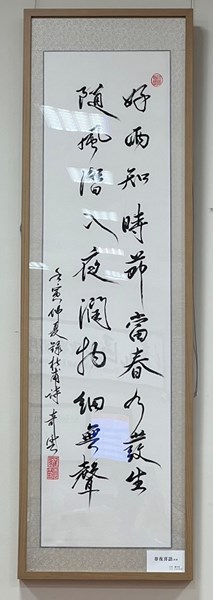 好雨知時節當春乃發生
随風潛入夜潤物細無聲
壬寅仲夏錄杜甫诗
春夜喜雨